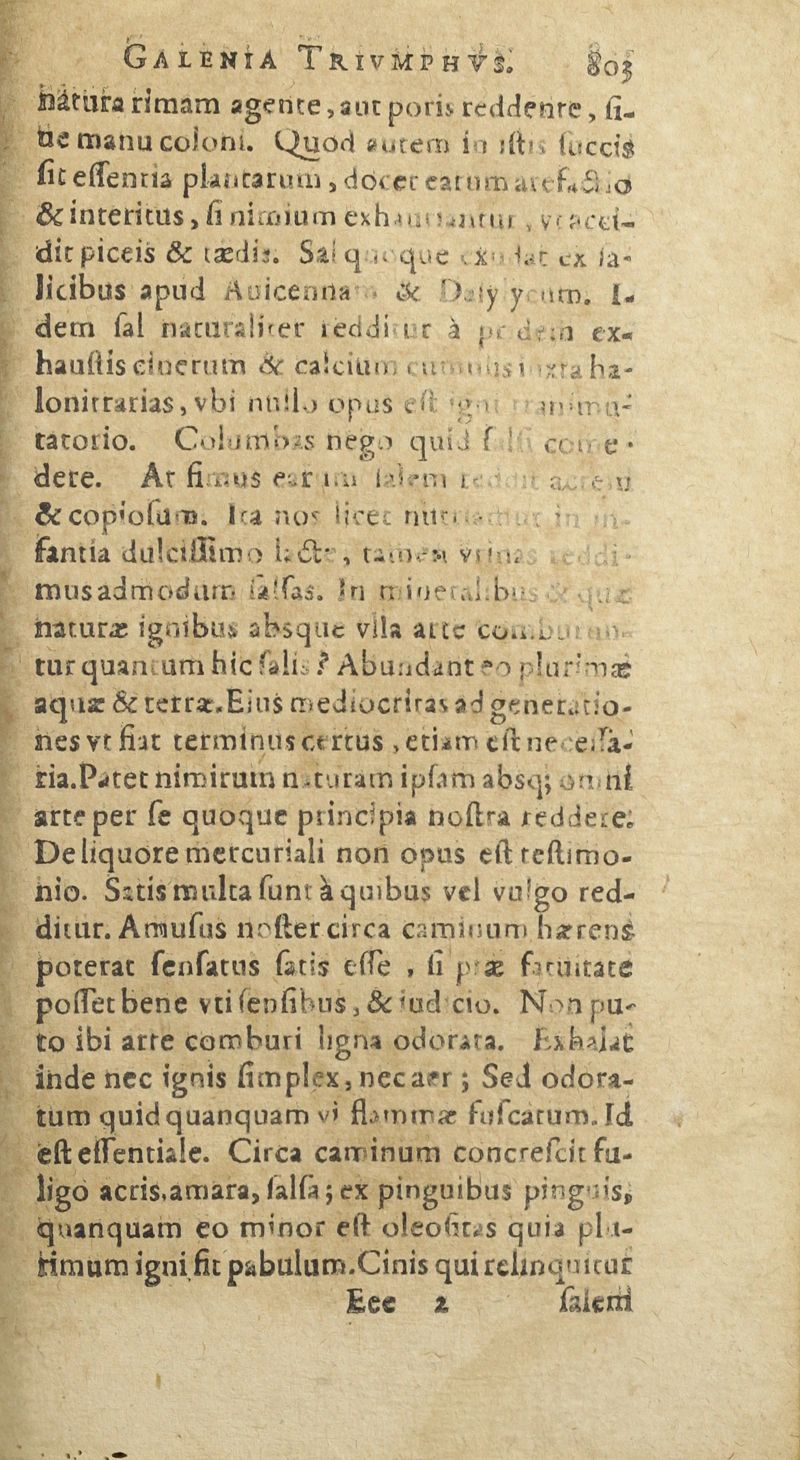 GALENIA TRIVMPHVS. 803
natura rimam agente, aut poris reddente, si-
ne manu coloni. Quod autem in istis succis
sit essentia plantarum, docet earum arefactio
& interitus, si nimium exhauriantur, vt acci-
dit piceis & tædis. Sal quoque ex
licibus apud Auicenna & y. I-
dem sal naturaliter redditur à ex-
haustis cinerum & calcium extra ha-
lonitrarias, vbi nullo opus est
tatorio. Columbas nego quid come-
dere. At fimus earum salem
& copiosum. Ita nos licet in in-
fantia dulcissimo lacte, tamen vrinas reddi-
mus admodum salsas. In mineralibus & quæ
naturæ ignibus absque vlla arte
tur quantum hic salis? Abundant eo plurimæ
aquæ & terræ. Eius mediocritas ad generatio-
nes vt fiat terminus certus, etiam est necessa-
ria. Patet nimirum naturam ipsam absq; omni
arte per se quoque principia nostra reddere.
De liquore mercuriali non opus est testimo-
nio. Satis multa sunt à quibus vel vulgo red-
ditur. Amusus noster circa caminum hærens
poterat sensatus satis esse, si præ fatuitate
posset bene vti sensibus, & iudicio. Non pu-
to ibi arte comburi ligna odorata. Exhalat
inde nec ignis simplex, nec aer; Sed odora-
tum quid quanquam vi flammæ fuscatum. Id
est essentiale. Circa caminum concrescit fu-
ligo acris, amara, salsa; ex pinguibus pinguis,
quanquam eo minor est oleositas quia plu-
rimum igni fit pabulum. Cinis qui relinquitur
Eee 2 salem